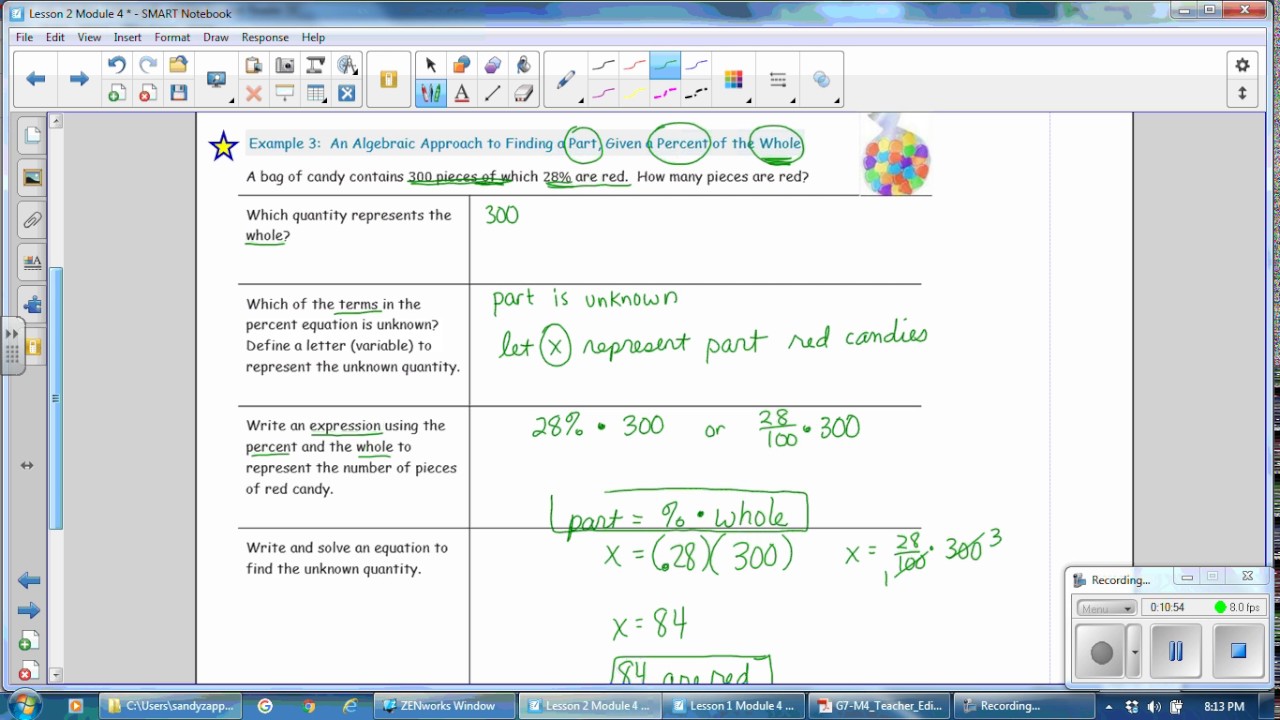 Lesson 2 Module 4 * - SMART Notebook
File Edit View Insert Format Draw Response Help
Example 3: An Algebraic Approach to Finding a Part, Given a Percent of the Whole
A bag of candy contains 300 pieces of which 28% are red. How many pieces are red?
Which quantity represents the
whole?
300
Which of the terms in the
percent equation is unknown?
Define a letter (variable) to
represent the unknown quantity.
part is unknown
let x represent part red candies
Write an expression using the
percent and the whole to
represent the number of pieces
of red candy.
28% • 300 or 28/100 • 300
part = % • whole
Write and solve an equation to
find the unknown quantity.
x = (.28)(300) x = 28/100 • 300 3
1
x = 84
84 are red
Recording...
Menu 0:10:54 8.0 fps
C:\Users\sandyzapp... ZENworks Window Lesson 2 Module 4 ... Lesson 1 Module 4 ... G7-M4_Teacher_Edi... Recording... 8:13 PM